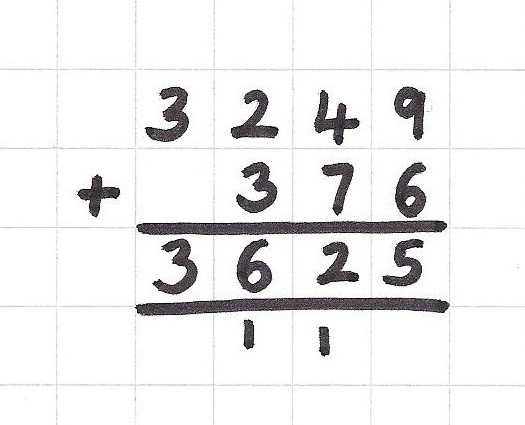 3 2 4 9
+ 3 7 6
3 6 2 5
1 1